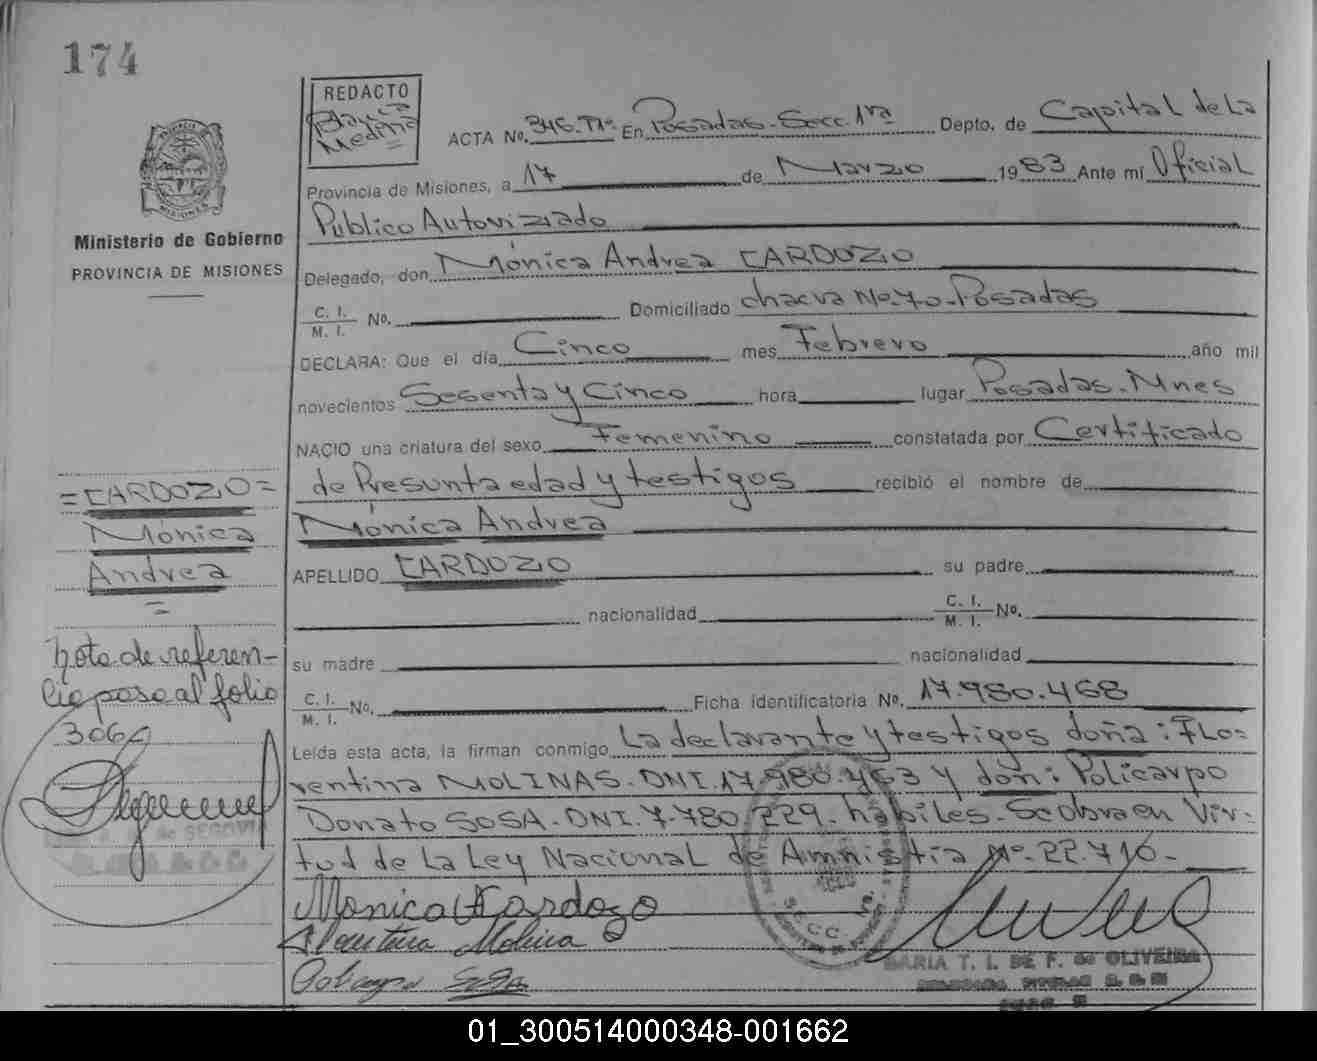 174
REDACTO
Medina
ACTA No. 346. Tº En Posadas - Secc. 1ra Depto. de Capital de la
Provincia de Misiones, a 17 de Marzo 1983 Ante mí Oficial
Publico Autorizado
Delegado, don Mónica Andrea CARDOZO
C. I.
M. I. No. Domiciliado chacra Nº 70 - Posadas
DECLARA: Que el día Cinco mes Febrero año mil
novecientos Sesenta y Cinco hora lugar Posadas - Mnes
NACIO una criatura del sexo Femenino constatada por Certificado
de Presunta edad y testigos recibió el nombre de
Mónica Andrea
APELLIDO CARDOZO su padre
nacionalidad C. I.
M. I. No.
su madre nacionalidad
C. I.
M. I. No. Ficha identificatoria No. 17.980.468
Leída esta acta, la firman conmigo La declarante y testigos doña: FLo-
rentina MOLINAS - DNI. 17.980.463 y don: Policarpo
Donato SOSA - DNI. 7.780.229 - hábiles - Se obra en Vir-
tud de La Ley Nacional de Amnistía Nº 22.710 -
Monica Cardozo
Molina
Sosa
SECC.
MARIA T. I. DE F. de OLIVEIRA
MISIONES
Ministerio de Gobierno
PROVINCIA DE MISIONES
= CARDOZO =
Mónica
Andrea
=
Nota de referen-
cia pasa al folio
306
de SEGOVIA
01_300514000348-001662